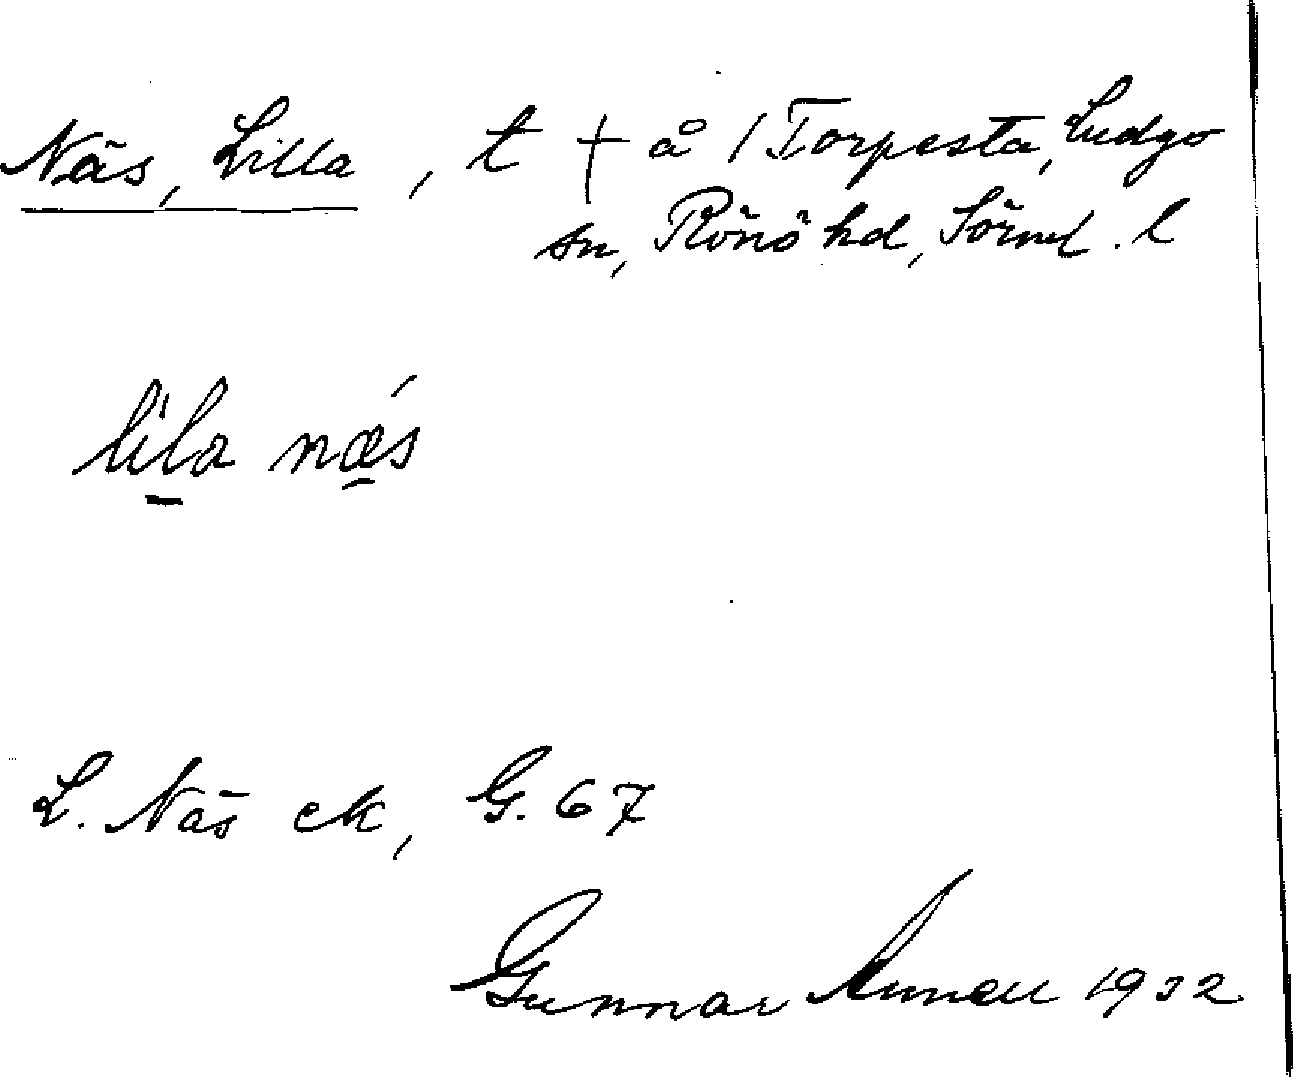 Näs, Lilla, t † å / Torpesta, Ludgo
sn, Rönö hd, Sörml. l
lila næs
L. Näs ek, G. 67
Gunnar 1932